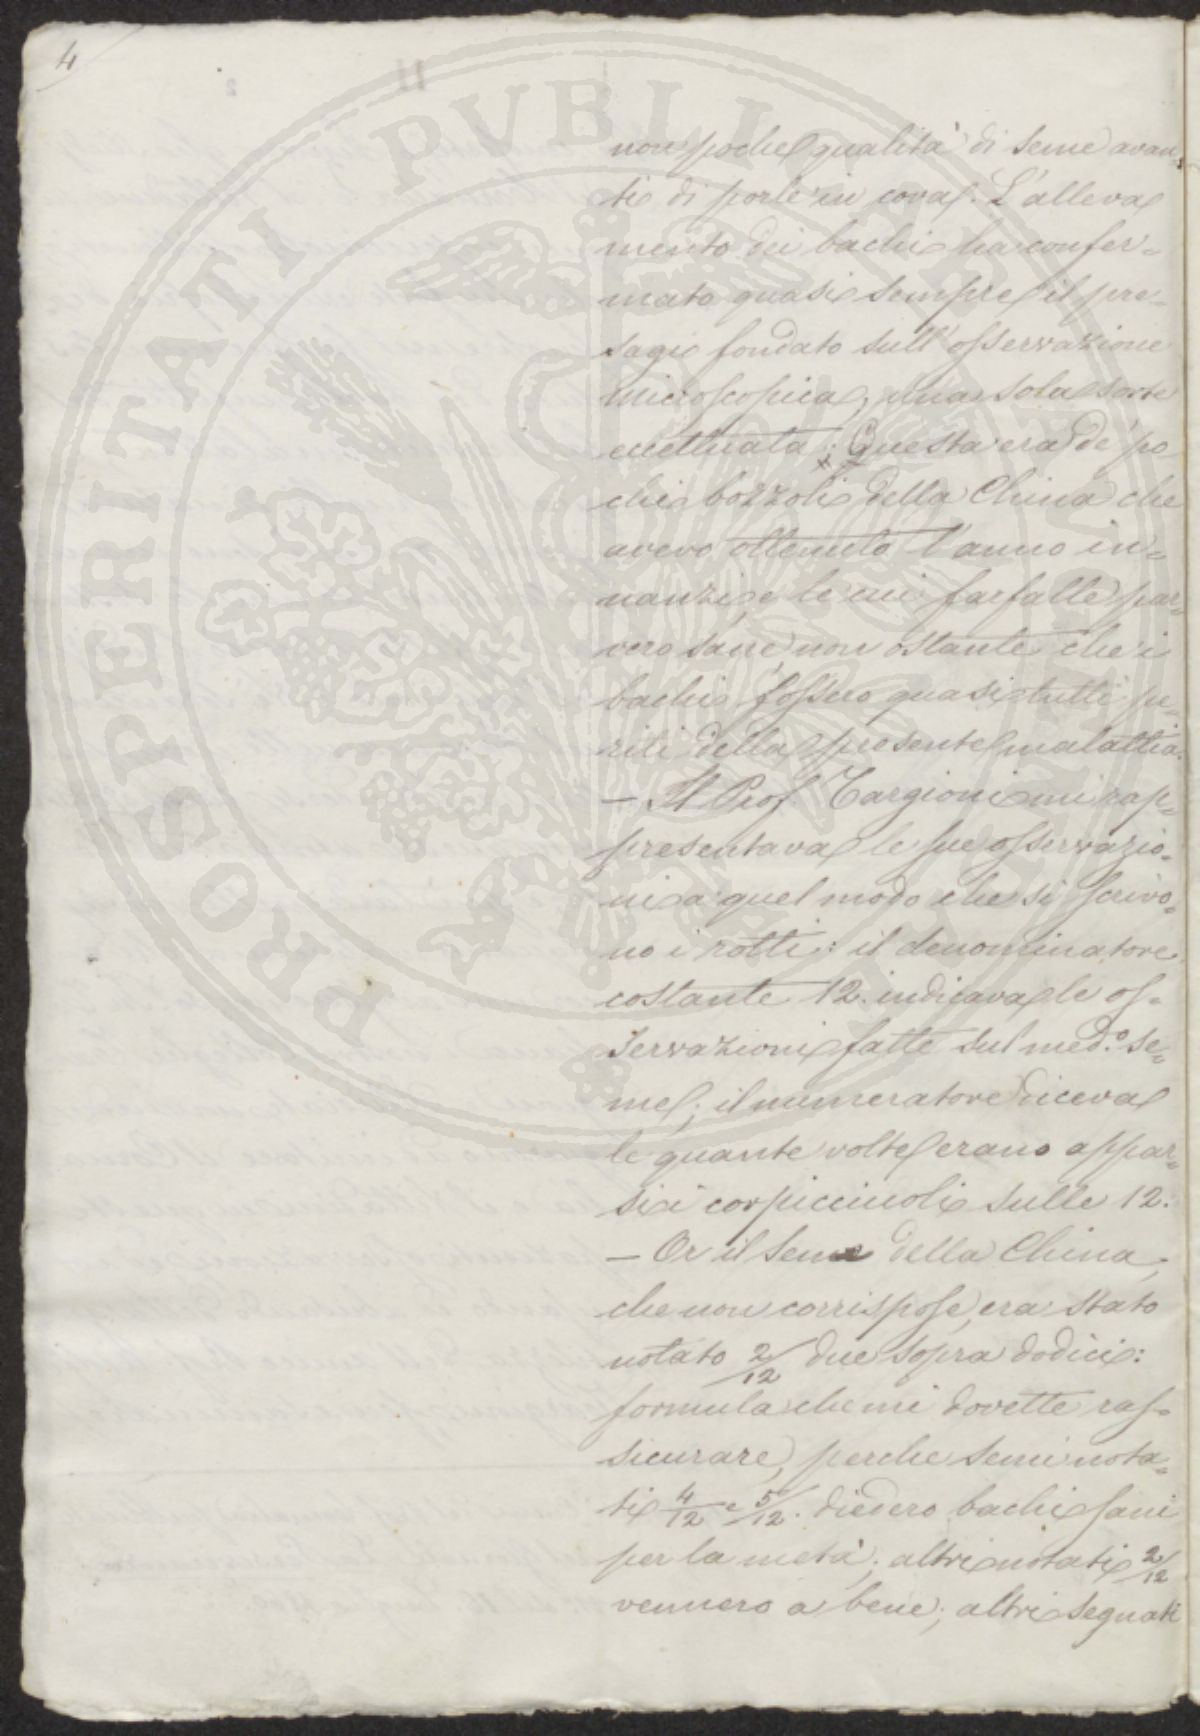 4
non poche qualità di seme avan=
ti di porle in cova. L'alleva
mento dei bachi ha confer=
mato quasi sempre il pre=
sagio fondato sull'osservazione
microscopica, una sola sorte
eccettuata: Questa era de' po
chi bozzoli della China che
avevo ottenuto l'anno in=
nanzi, e le cui farfalle par=
vero sane, non ostante che i
bachi fossero quasi tutti pe=
riti della presente malattia.
— Il Prof. Targioni mi rap=
presentava le sue osservazio=
ni a quel modo che si scrivo=
no i rotti: il denominatore
costante 12. indicava le os=
servazioni fatte sul med.º se=
me; il numeratore diceva
le quante volte erano appar=
si i corpiccinoli sulle 12.
— Or il seme della China,
che non corrispose, era stato
notato 2/12 due sopra dodici:
formula che mi dovette ras=
sicurare, perche semi nota=
ti 4/12 e 5/12. diedero bachi sani
per la metà; altri notati 2/12
vennero a bene; altri segnati
PROSPERITATI PUBLICAE